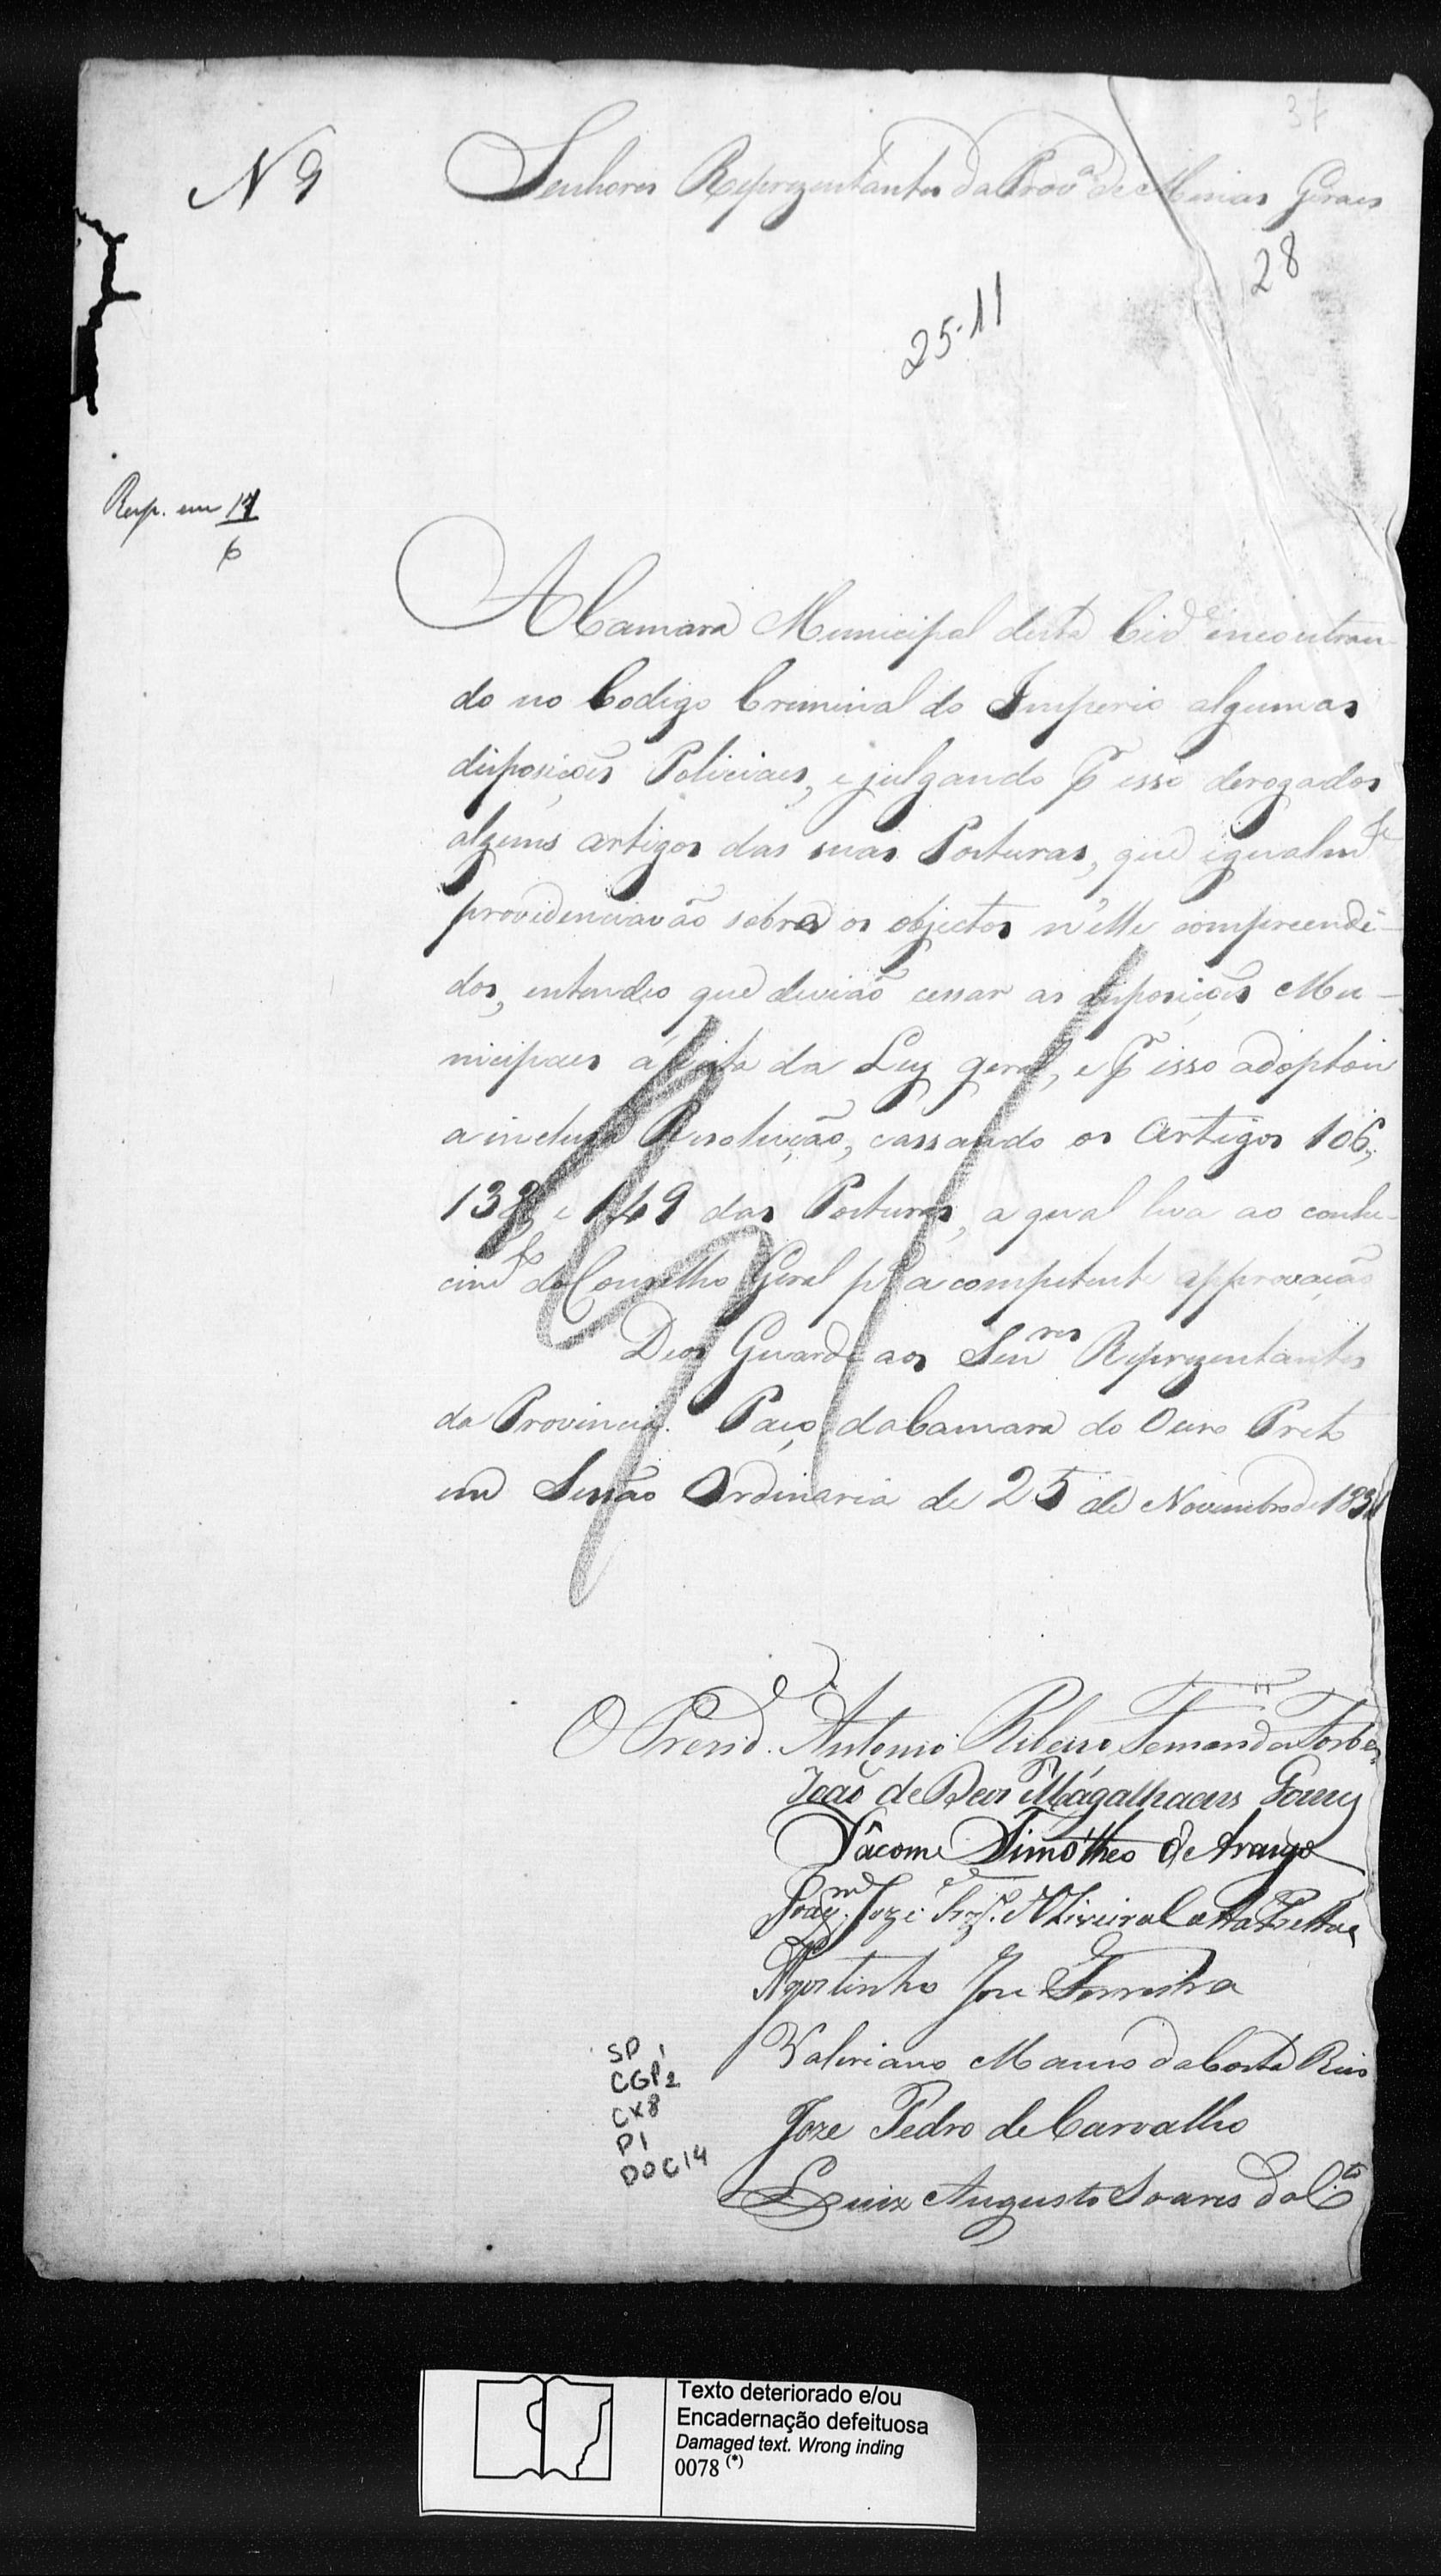 N 9
Senhores Reprezentantes da Prov.ª de Minas Geraes
28
25-11
Resp. em 14
6
A Camara Municipal desta Cid.e encontran-
do no Codigo Criminal do Imperio algumas
disposições Policiaes, e julgando p.r isso derogados
alguns artigos das suas Posturas, que igualm.te
providenciavão sobre os objectos n'elle compreendi-
dos, entendeo que devião cessar as disposições Mu-
nicipaes á vista da Ley geral, e p.r isso adoptou
a incluza Resolução, cassando os Artigos 106,
138, e 149 das Posturas, a qual leva ao conhe-
cim.to do Conselho Geral p.ª a competente approvação
Deos Guarde aos Sen.res Reprezentantes
da Provincia. Paço da Camara do Ouro Preto
em Sessão Ordinaria de 25 de Novembro de 1831
O Presid.e Antonio Ribeiro Fernandes Forbes
João de Deos Magalhaens Gomes
Jácome Timótheo de Araujo
Joaq.m Joze
Agostinho Joze Ferreira
Valeriano Manso da Costa Reis
Joze Pedro de Carvalho
Luiz Augusto Soares do C.to
SP 1
CGP2
CX8
P1
DOC14
Texto deteriorado e/ou
Encadernação defeituosa
Damaged text. Wrong inding
0078 (*)